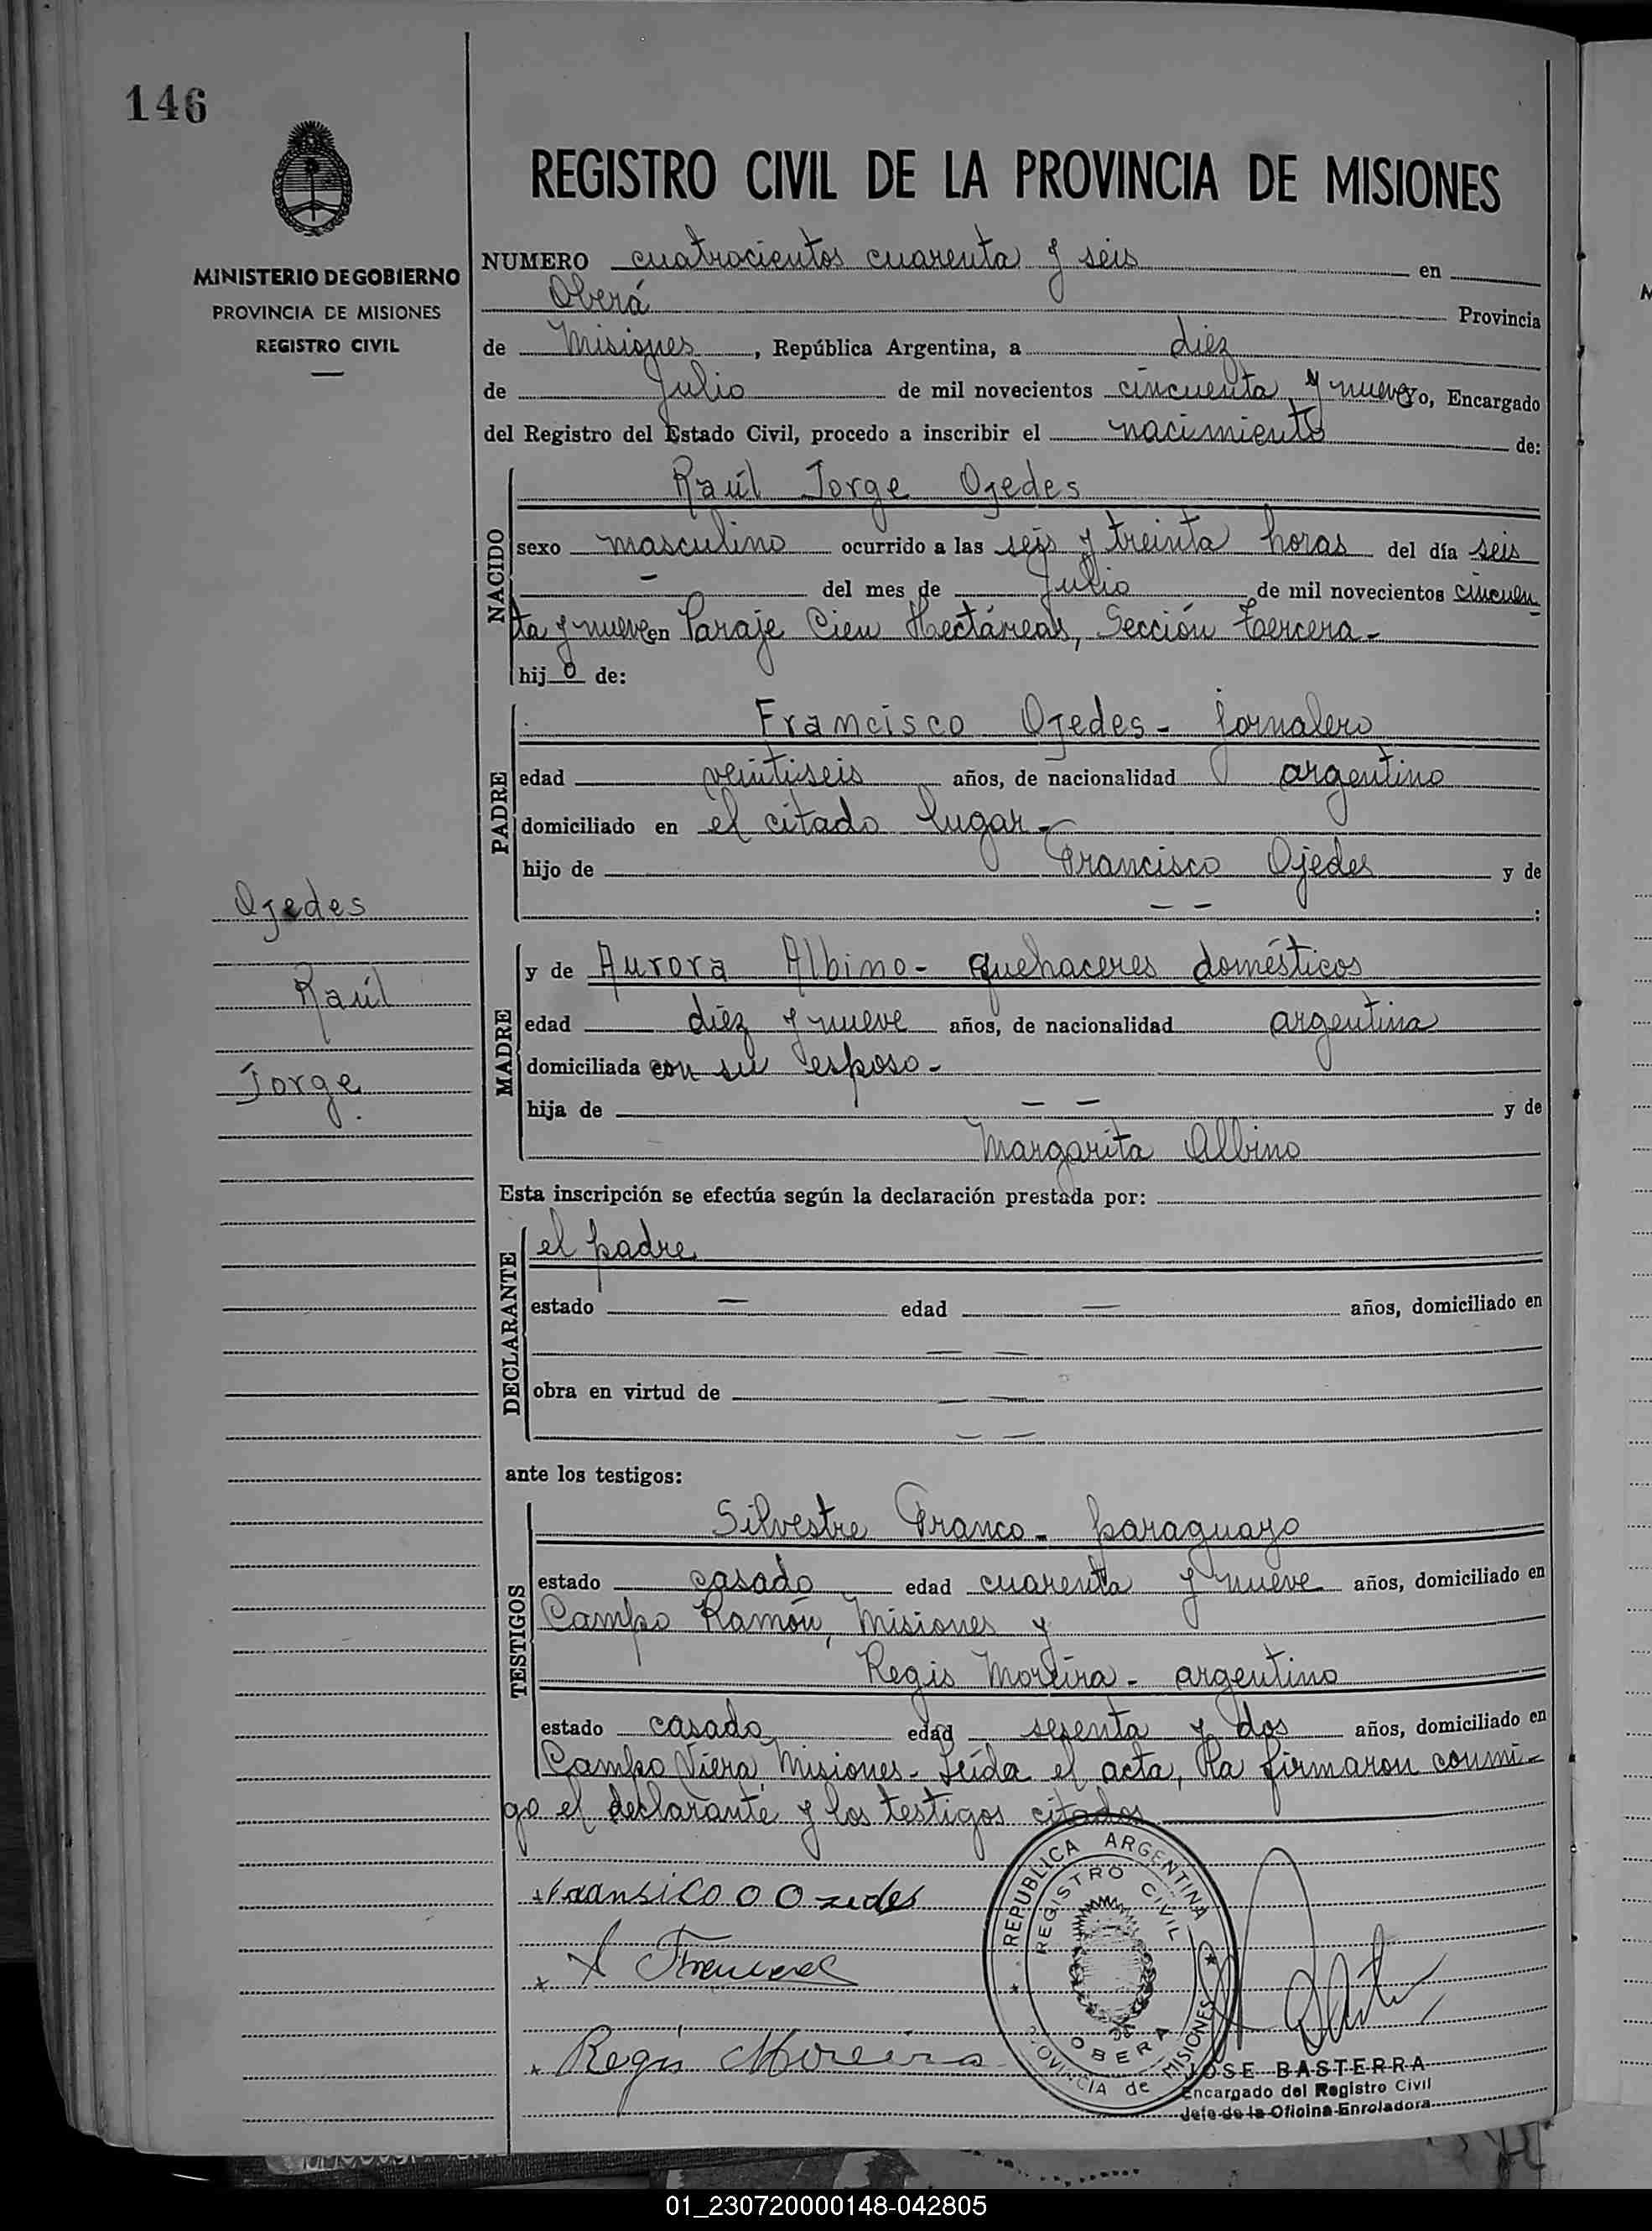 146
MINISTERIO DE GOBIERNO
PROVINCIA DE MISIONES
REGISTRO CIVIL
REGISTRO CIVIL DE LA PROVINCIA DE MISIONES
NUMERO cuatrocientos cuarenta y seis en
Oberá Provincia
de Misiones, República Argentina, a diez
de Julio de mil novecientos cincuenta y nueve yo, Encargado
del Registro del Estado Civil, procedo a inscribir el nacimiento de:
NACIDO
Raúl Jorge Ojedes
sexo masculino ocurrido a las seis y treinta horas del día seis
— del mes de Julio de mil novecientos cincuen
ta y nueve en Paraje Cien Hectáreas, Sección Tercera-
hij o de:
PADRE
Francisco Ojedes - jornalero
edad veintiseis años, de nacionalidad argentino
domiciliado en el citado lugar-
hijo de Francisco Ojedes y de
— — :
Ojedes
Raúl
Jorge.
MADRE
y de Aurora Albino - quehaceres domésticos
edad diez y nueve años, de nacionalidad argentina
domiciliada con su esposo-
hija de — — y de
Margarita Albino
Esta inscripción se efectúa según la declaración prestada por:
DECLARANTE
el padre
estado — edad — años, domiciliado en
— —
obra en virtud de —
— —
ante los testigos:
TESTIGOS
Silvestre Franco - paraguayo
estado casado edad cuarenta y nueve años, domiciliado en
Campo Ramón, Misiones y
Regis Moreira - argentino
estado casado edad sesenta y dos años, domiciliado en
Campo Viera, Misiones - Leída el acta, la firmaron conmi-
go el declarante y los testigos citados
Regis Moreira
REPUBLICA ARGENTINA
REGISTRO CIVIL
OBERA
PROVINCIA de MISIONES
JOSE BASTERRA
Encargado del Registro Civil
Jefe de la Oficina Enroladora
01_230720000148-042805